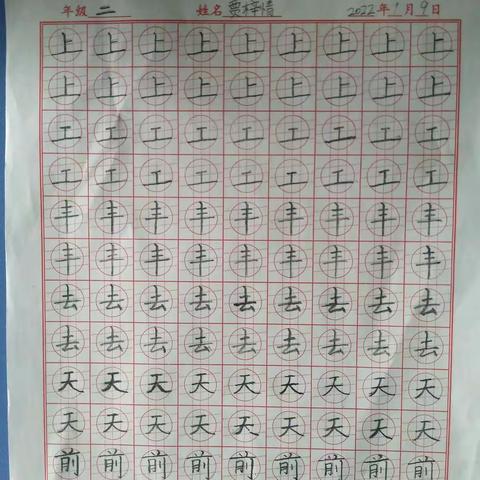 年级 二 姓名 贾梓情 2022年1月9日
上上上上上上上上上
上上上上上上上上上
工工工工工工工工工
工工工工工工工工工
丰丰丰丰丰丰丰丰丰
丰丰丰丰丰丰丰丰丰
去去去去去去去去去
去去去去去去去去去
天天天天天天天天天
天天天天天天天天天
前前前前前前前前前